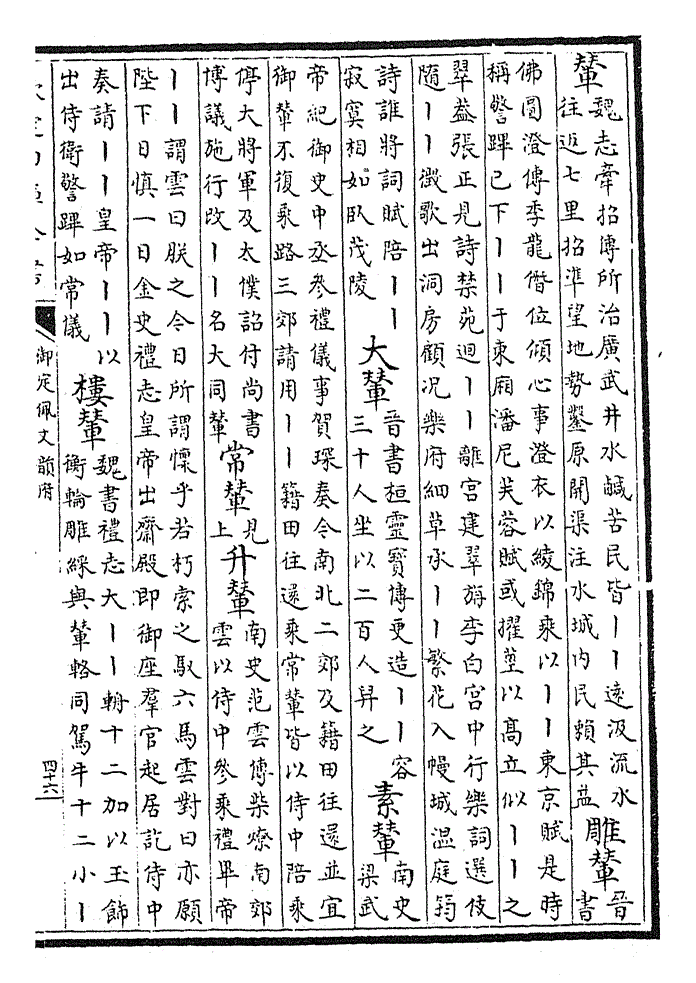 輦魏志牽招傳所治廣武井水鹹苦民皆丨丨遠汲流水
往返七里招準望地勢鑿原開渠注水城内民賴其益雕輦晉
書
佛圖澄傳季龍僭位傾心事澄衣以綾錦乘以丨丨東京賦是時
稱警蹕已下丨丨于東廂潘尼芙蓉賦或擢莖以高立似丨丨之
翠葢張正見詩禁苑迴丨丨離宫建翠旃李白宫中行樂詞選伎
隨丨丨徵歌出洞房顧况樂府細草承丨丨繁花入幔城温庭筠
詩誰將詞賦陪丨丨
寂寞相如卧茂陵大輦晉書桓靈寶傳更造丨丨容
三十人坐以二百人舁之素輦南史
梁武
帝紀御史中丞參禮儀事賀琛奏今南北二郊及籍田往還並宜
御輦不復乘路三郊請用丨丨籍田往還乘常輦皆以侍中陪乘
停大將軍及太僕詔付尚書
博議施行改丨丨名大同輦常輦見
上升輦南史范雲傳柴燎南郊
雲以侍中參乘禮畢帝
丨丨謂雲曰朕之今日所謂懍乎若朽索之馭六馬雲對曰亦願
陛下日慎一日金史禮志皇帝出齋殿即御座羣官起居訖侍中
奏請丨丨皇帝丨丨以
出侍衛警蹕如常儀樓輦魏書禮志大丨丨輈十二加以玉飾
衡輪雕綵與輦輅同駕牛十二小丨
欽定四庫全書
御定佩文韻府
四十六